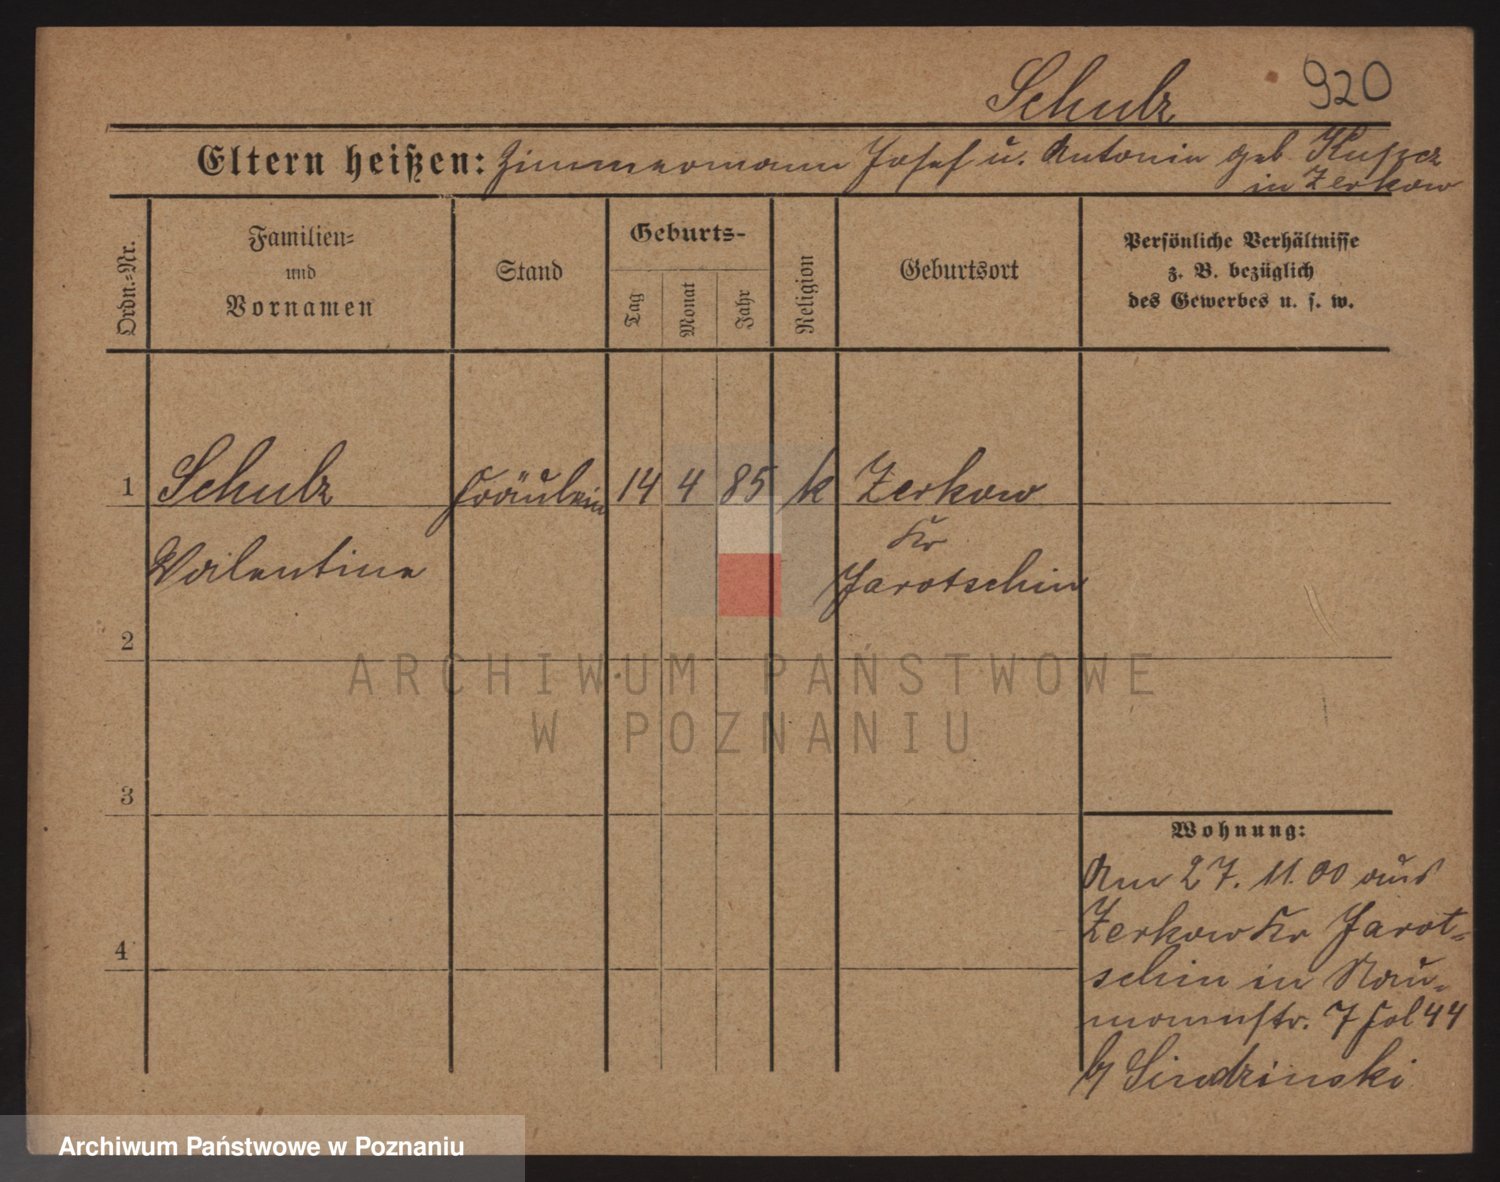 Schulz 920
Eltern heißen: Zimmermann Josef u. Antonie geb.
in Zerkow
Ordn.-Nr.
Familien-
und
Vornamen
Stand
Geburts-
Tag
Monat
Jahr
Religion
Geburtsort
Persönliche Verhältnisse
z. B. bezüglich
des Gewerbes u. s. w.
1 Schulz Fräulein 14 4 85 k Zerkow
Kr
Valentine Jarotschin
2
ARCHIWUM PAŃSTWOWE
W POZNANIU
3
Wohnung:
Am 27. 11. 00 aus
Zerkow Kr Jarot-
4
schin in Nau-
mannstr. 7 fol 44
b/ Sindzinski
Archiwum Państwowe w Poznaniu